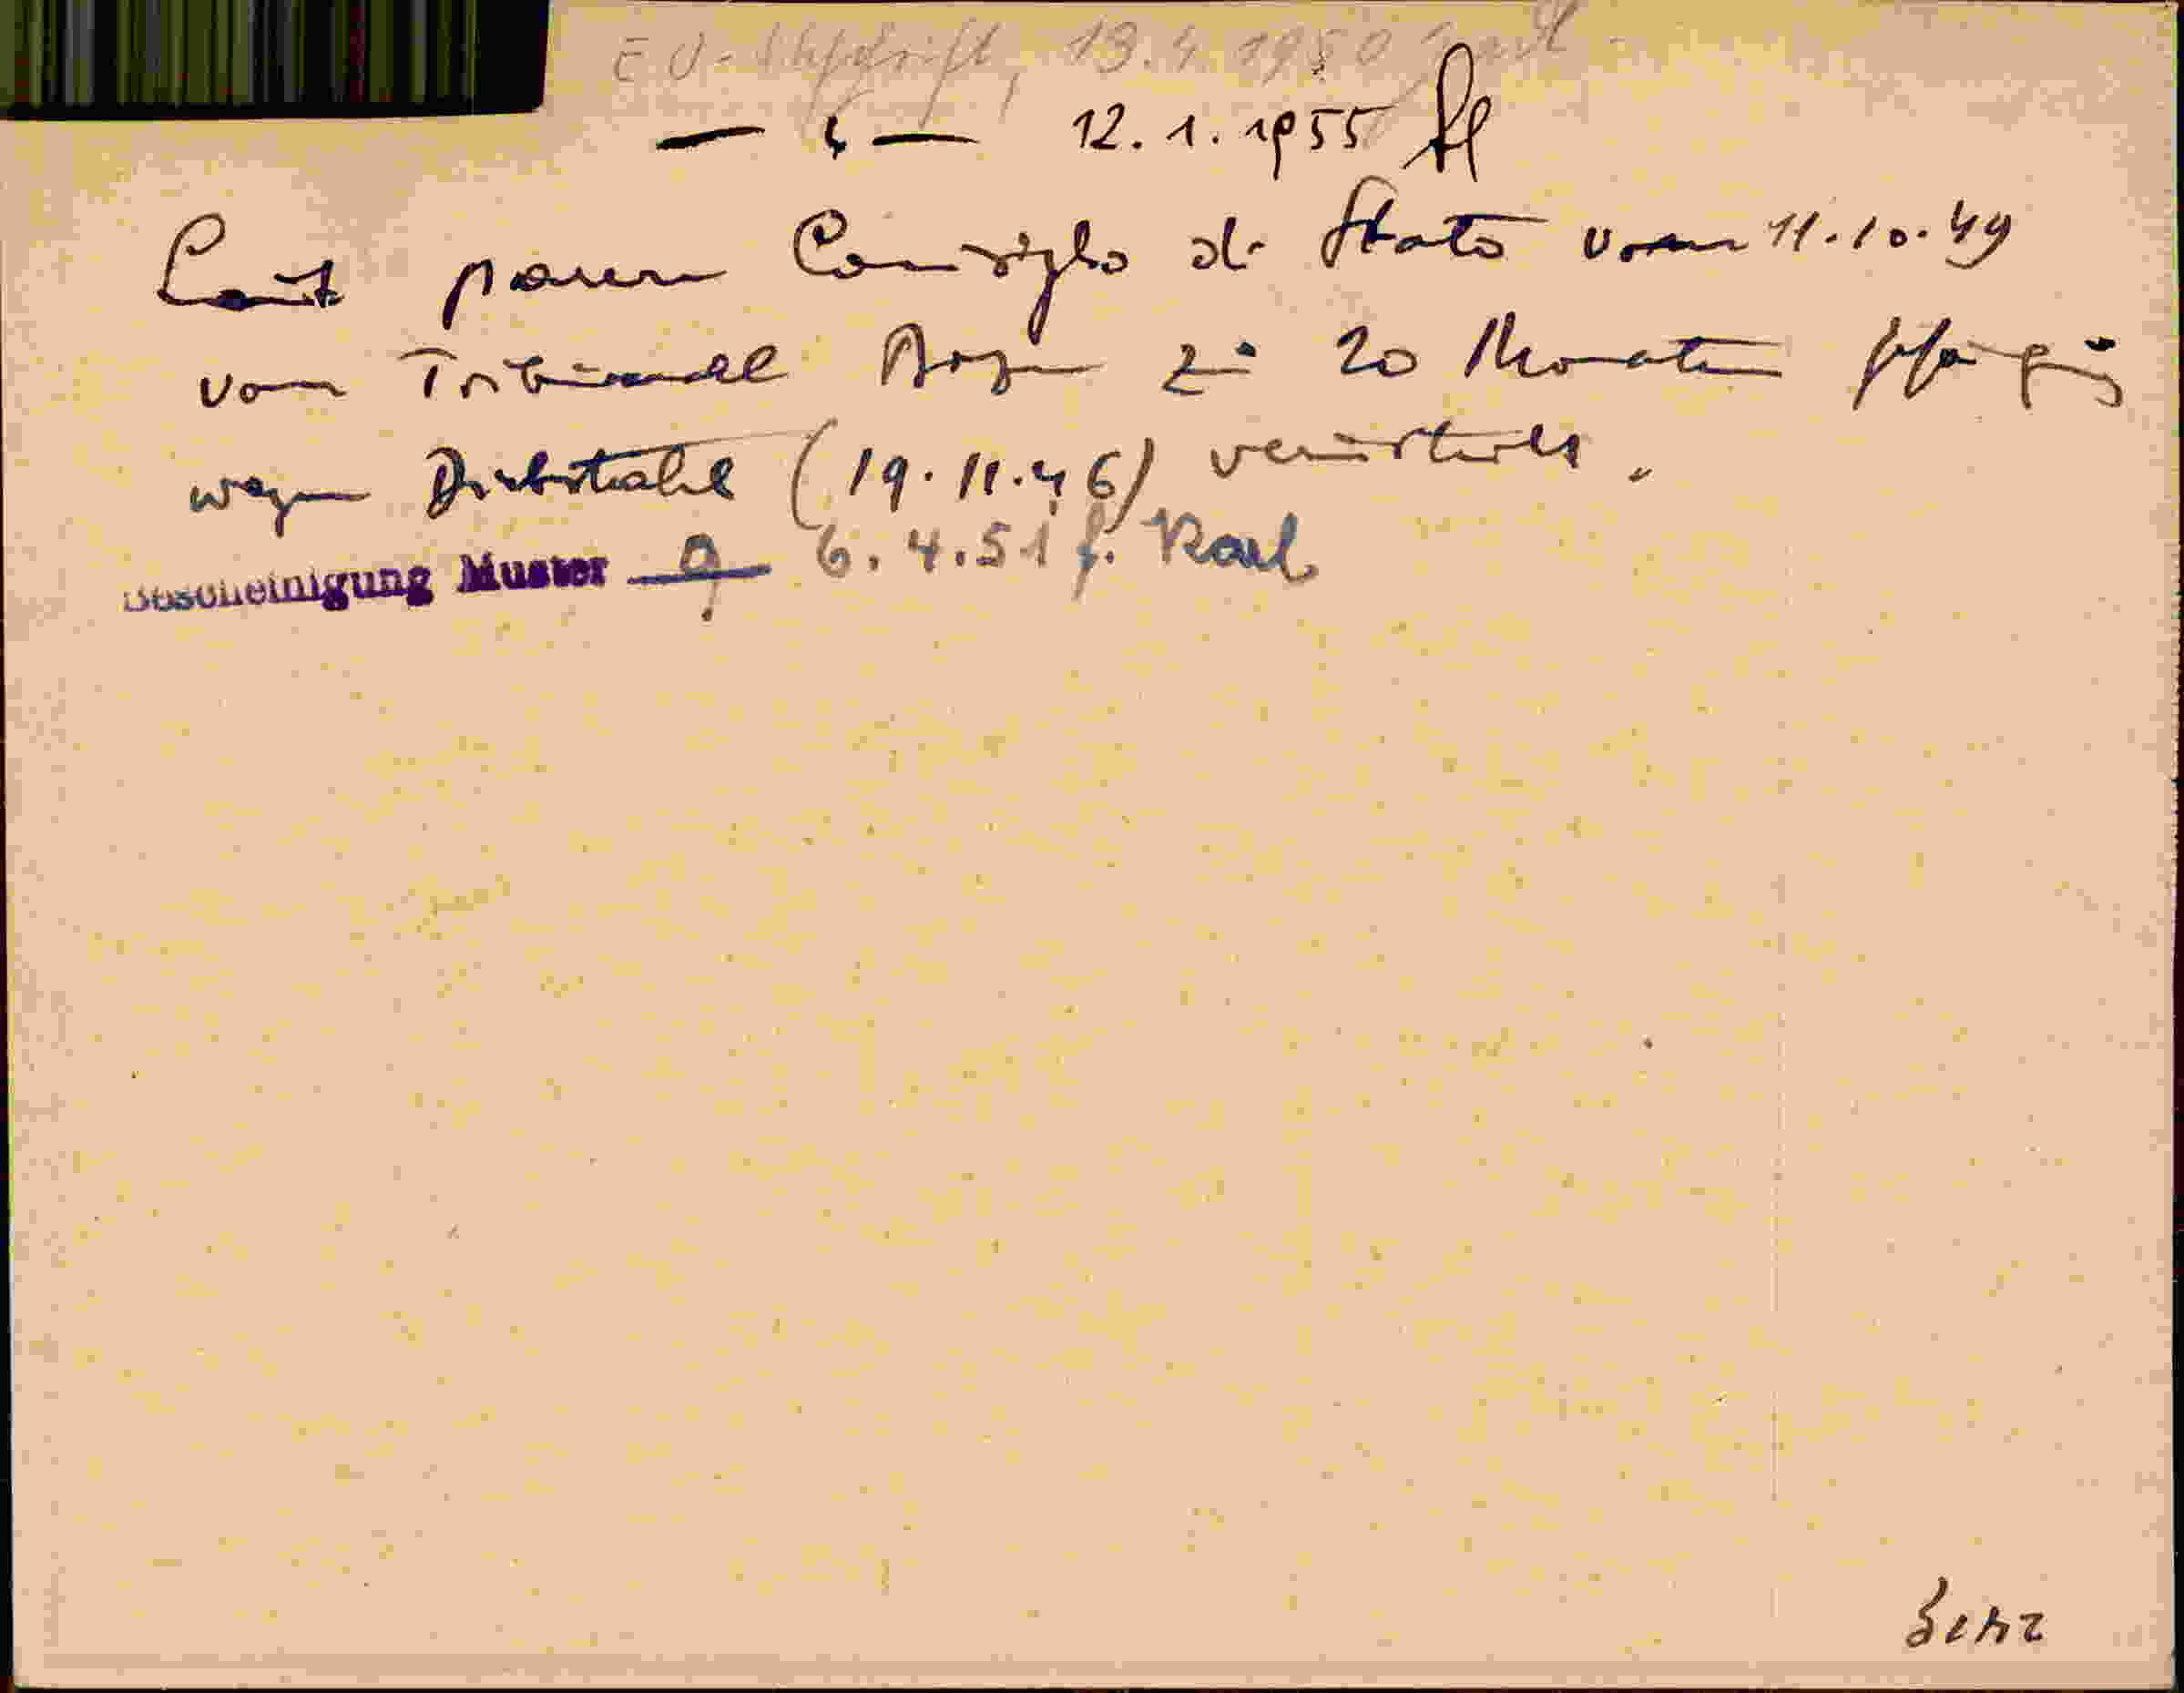 EU-Abschrift, 13.4.1950
— " — 12.1.1955
Laut parere Consiglio di Stato vom 11.10.49
vom Tribunale Bozen zu 20 Monaten Gefängnis
wegen Diebstahl (19.11.46) verurteilt.
Bescheinigung Muster 9 6.4.51 f. Karl